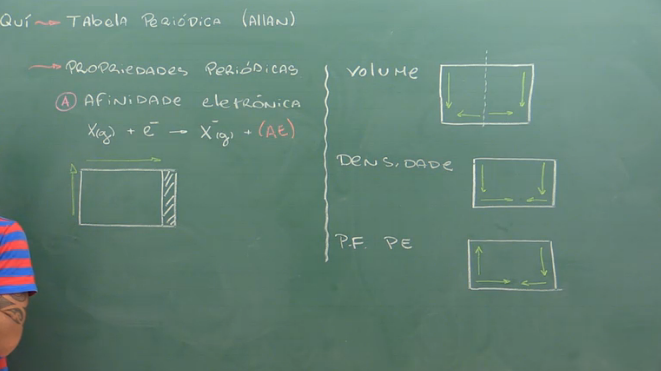 Quí → Tabela Periódica (Allan)
→ Propriedades Periódicas
A Afinidade eletrônica
X(g) + e⁻ → X⁻(g) + (AE)
Volume
Densidade
P.F. PE